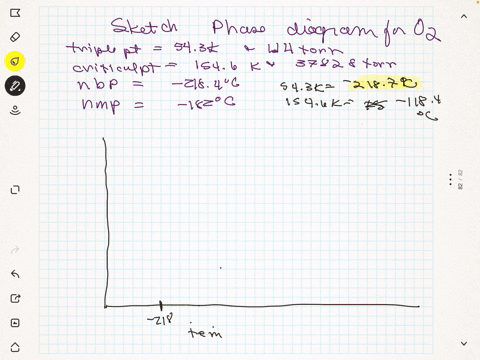 Sketch Phase diagram for O2
triple pt = 54.3k & 1.14 torr
critical pt = 154.6 k & 37828 torr
nbp = -218.4°C 54.3k= -218.7°C
nmp = -182°C 154.6k= -118.4 °C
-218
tem